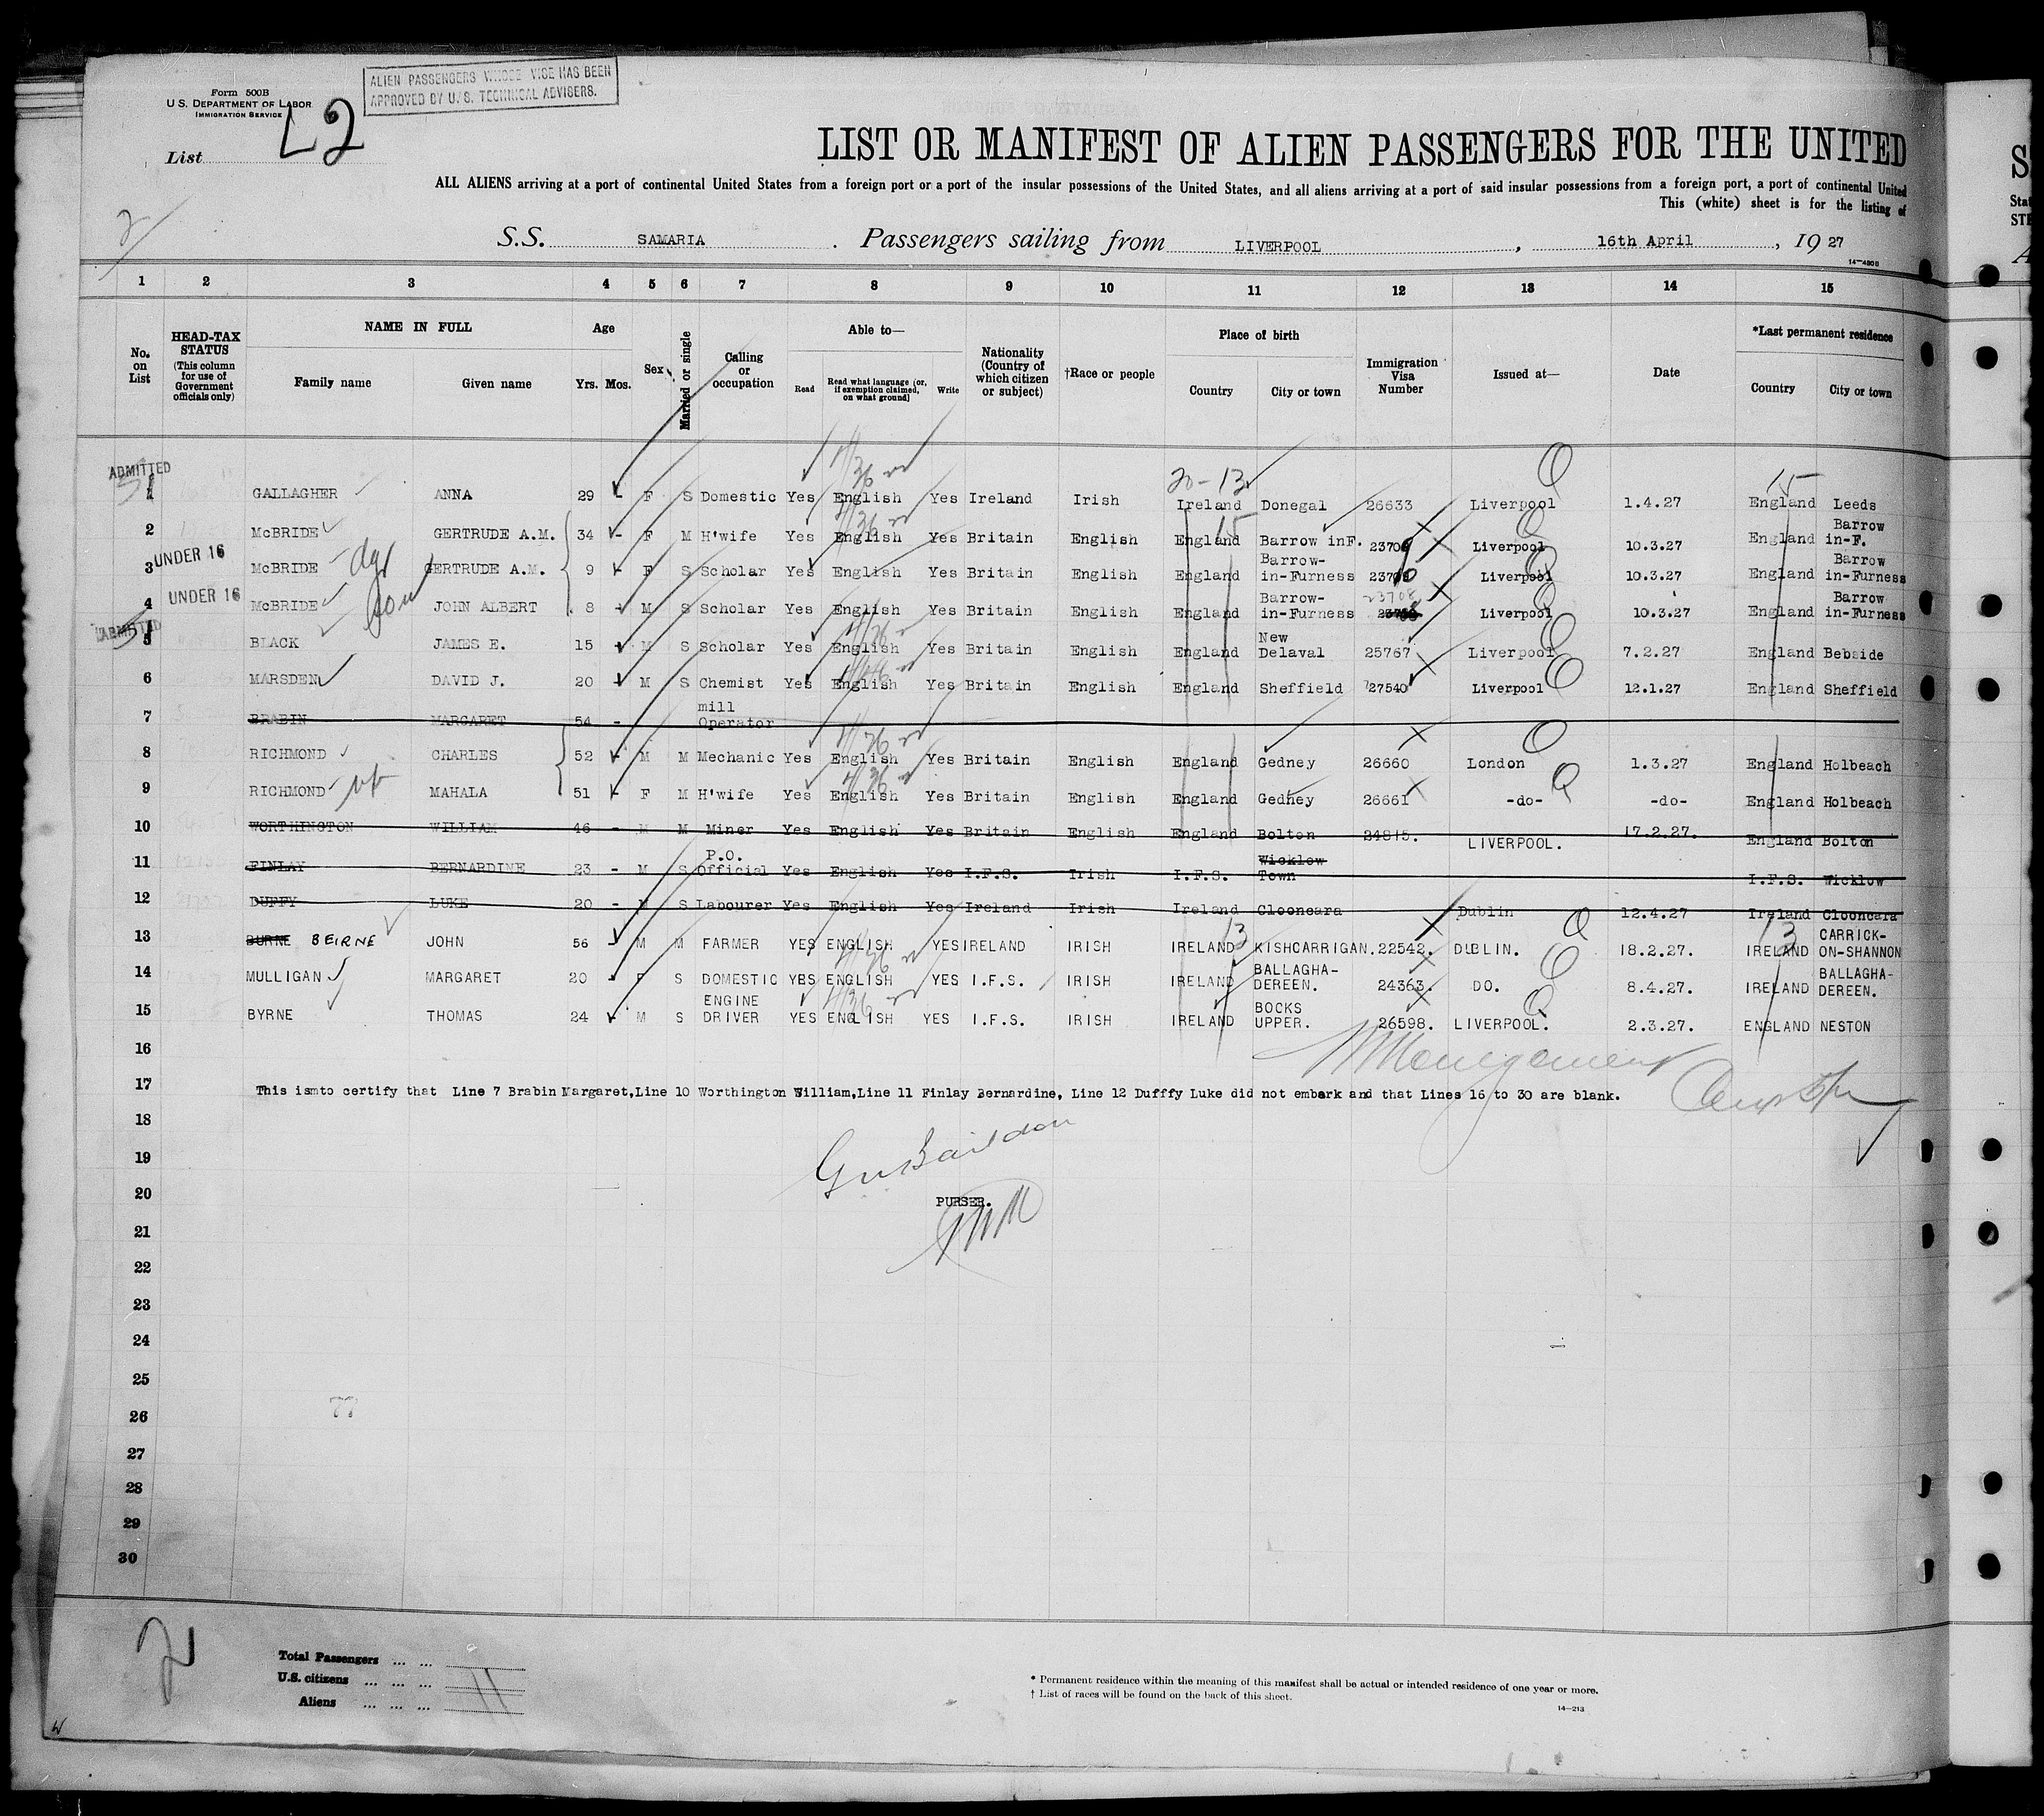 Form 500B
U. S. DEPARTMENT OF LABOR
IMMIGRATION SERVICE
ALIEN PASSENGERS WHOSE VICE HAS BEEN
APPROVED BY U.S. TECHNICAL ADVISERS.
List
L2
LIST OR MANIFEST OF ALIEN PASSENGERS FOR THE UNITED
ALL ALIENS arriving at a port of continental United States from a foreign port or a port of the insular possessions of the United States, and all aliens arriving at a port of said insular possessions from a foreign port, a port of continental United
This (white) sheet is for the listing of
S.S. SAMARIA . Passengers sailing from LIVERPOOL , 16th April , 19 27
14-480B
1 2 3 4 5 6 7 8 9 10 11 12 13 14 15
No. on List
HEAD-TAX STATUS (This column for use of Government officials only)
NAME IN FULL
Family name Given name
Age
Yrs. Mos.
Sex
Married or single
Calling or occupation
Able to—
Read
Read what language (or, if exemption claimed, on what ground)
Write
Nationality (Country of which citizen or subject)
†Race or people
Place of birth
Country City or town
Immigration Visa Number
Issued at—
Date
*Last permanent residence
Country City or town
ADMITTED
20-13 15
1 GALLAGHER ANNA 29 - F S Domestic Yes English Yes Ireland Irish Ireland Donegal 26633 Liverpool 1.4.27 England Leeds
2 McBRIDE GERTRUDE A.M. 34 - F M H'wife Yes English Yes Britain English England Barrow inF. Liverpool 10.3.27 England Barrow in-F.
UNDER 16
3 McBRIDE GERTRUDE A.M. 9 - F S Scholar Yes English Yes Britain English England Barrow-in-Furness Liverpool 10.3.27 England Barrow in-Furness
UNDER 16
4 McBRIDE son JOHN ALBERT 8 - M S Scholar Yes English Yes Britain English England Barrow-in-Furness 23708 Liverpool 10.3.27 England Barrow in-Furness
ADMITTED
5 BLACK JAMES E. 15 - M S Scholar Yes English Yes Britain English England New Delaval 25767 Liverpool 7.2.27 England Bebside
6 MARSDEN DAVID J. 20 - M S Chemist Yes English Yes Britain English England Sheffield 27540 Liverpool 12.1.27 England Sheffield
7 BRABIN MARGARET 54 - mill Operator
8 RICHMOND CHARLES 52 - M M Mechanic Yes English Yes Britain English England Gedney 26660 London 1.3.27 England Holbeach
9 RICHMOND MAHALA 51 - F M H'wife Yes English Yes Britain English England Gedney 26661 -do- -do- England Holbeach
10 WORTHINGTON WILLIAM 46 - M M Miner Yes English Yes Britain English England Bolton 24815. LIVERPOOL. 17.2.27. England Bolton
11 FINLAY BERNARDINE 23 - M S P.O. Official Yes English Yes I.F.S. Irish I.F.S. Wicklow Town I.F.S. Wicklow
12 DUFFY LUKE 20 - M S Labourer Yes English Yes Ireland Irish Ireland Clooncara Dublin 12.4.27 Ireland Clooncara
13 BURNE BEIRNE JOHN 56 - M M FARMER YES ENGLISH YES IRELAND IRISH IRELAND KISHCARRIGAN. 22542. DUBLIN. 18.2.27. IRELAND CARRICK-ON-SHANNON
14 MULLIGAN MARGARET 20 - F S DOMESTIC YES ENGLISH YES I.F.S. IRISH IRELAND BALLAGHA-DEREEN. 24363. DO. 8.4.27. IRELAND BALLAGHA-DEREEN.
15 BYRNE THOMAS 24 - M S ENGINE DRIVER YES ENGLISH YES I.F.S. IRISH IRELAND BOCKS UPPER. 26598. LIVERPOOL. 2.3.27. ENGLAND NESTON
16
17 This ismto certify that Line 7 Brabin Margaret,Line 10 Worthington William,Line 11 Finlay Bernardine, Line 12 Dufffy Luke did not embark and that Lines 16 to 30 are blank.
18
19
20
PURSER.
21
22
23
24
25
26
77
27
28
29
30
2
Total Passengers ... ...
U.S. citizens ... ... ...
Aliens ... ... ...
11
* Permanent residence within the meaning of this manifest shall be actual or intended residence of one year or more.
† List of races will be found on the back of this sheet.
14-213